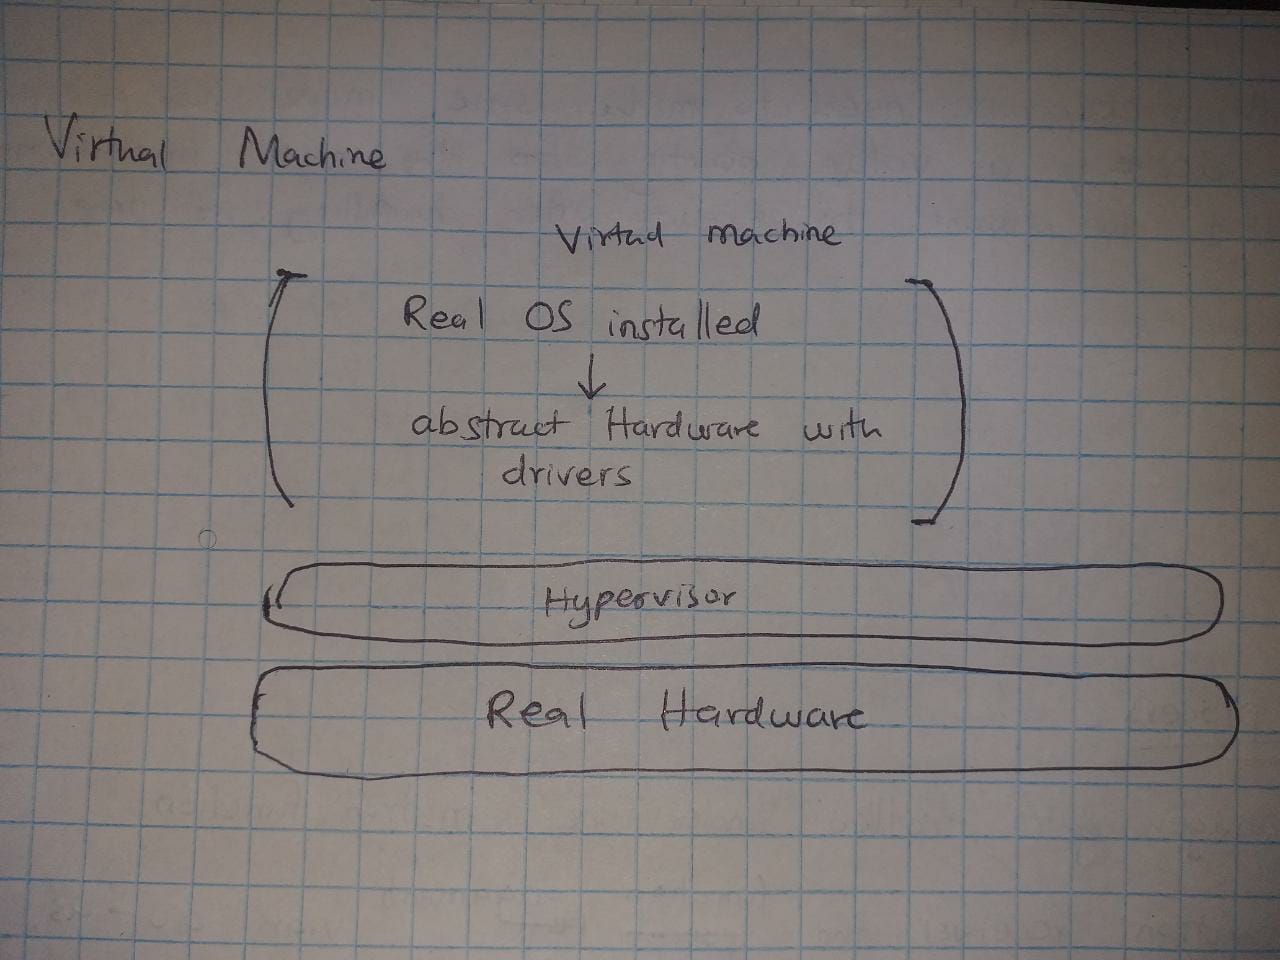 Virtual Machine
Virtual machine
Real OS installed
abstract Hardware with
drivers
Hypervisor
Real Hardware